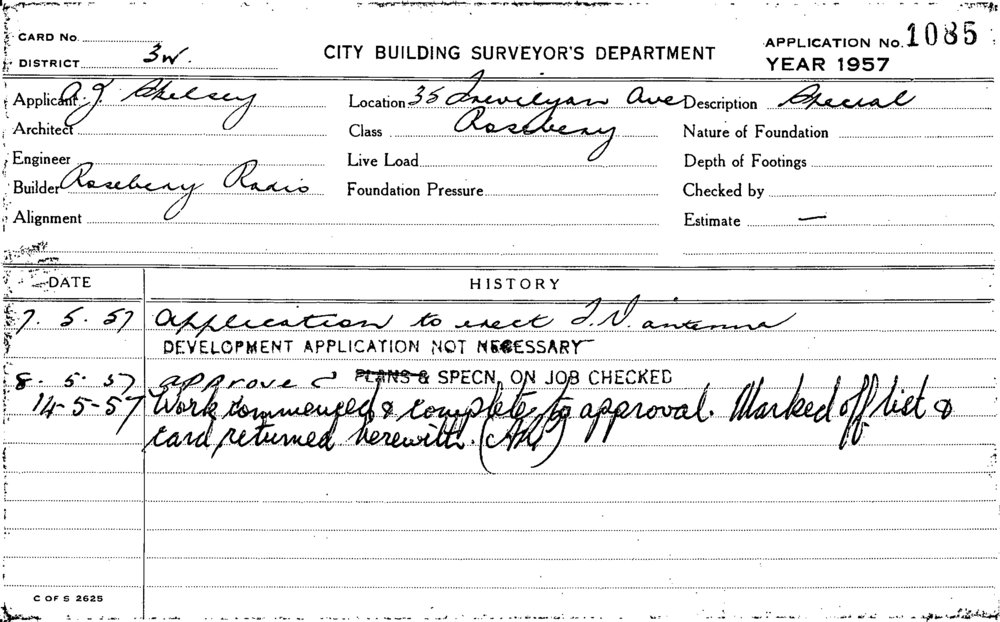 CARD No.
DISTRICT 3W.
CITY BUILDING SURVEYOR'S DEPARTMENT
APPLICATION No. 1085
YEAR 1957
Applicant A.J. Chelsey
Location 35 Trevilyan Ave
Description Special
Architect
Class Rosebery
Nature of Foundation
Engineer
Live Load
Depth of Footings
Builder Rosebery Radio
Foundation Pressure
Checked by
Alignment
Estimate —
DATE HISTORY
7. 5. 57 Application to erect T.V. antenna
DEVELOPMENT APPLICATION NOT NECESSARY
8. 5. 57 approved PLANS & SPECN. ON JOB CHECKED
14-5-57 Work commenced & complete to approval. Marked off list &
card returned herewith.
C OF S 2625